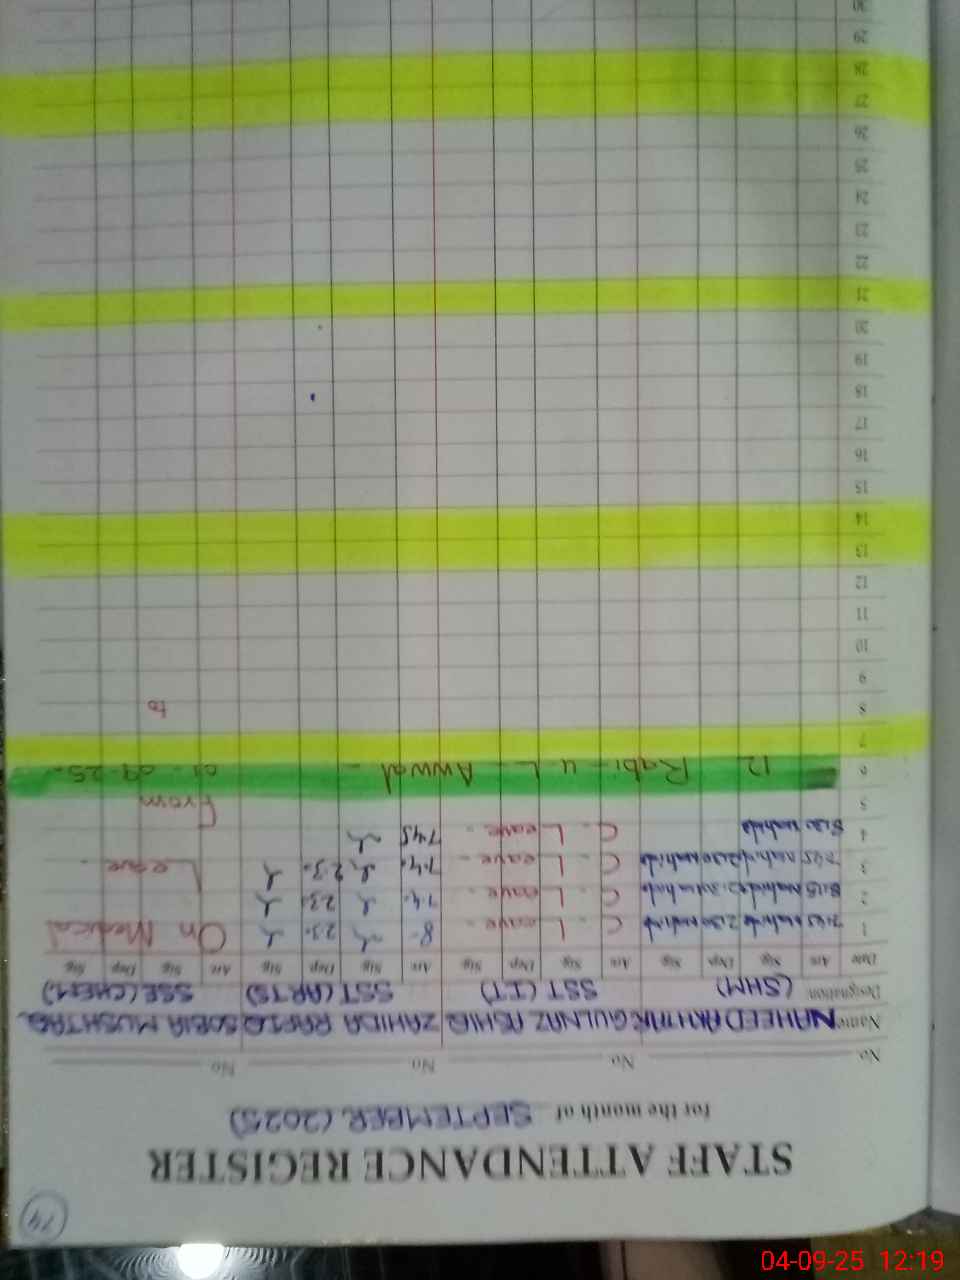 74
STAFF ATTENDANCE REGISTER
for the month of SEPTEMBER (2025)
No No No No
Name NAHEED AKHTAR GULNAZ ASHIQ ZAHIDA RAFIQ SOBIA MUSHTAQ
Designation (SHM) SST (IT) SST (ARTS) SSE (CHEM)
Date Arr. Sig. Dep. Sig. Arr. Sig. Dep. Sig. Arr. Sig. Dep. Sig. Arr. Sig. Dep. Sig.
1 7:45 nahide 2:30 nahide C. Leave - 8- 23. On Medical
2 8:15 nahide 2:30 nahide C. Leave - 7.4. 23.
3 7:45 nahide 2:30 nahide C. Leave - 7.4. 23. Leave -
4 8:20 nahide C. Leave - 7.45
5 From
6 12 Rabi-ul-Awwal - 01-09-25.
7
8 to
9
10
11
12
13
14
15
16
17
18
19
20
21
22
23
24
25
26
27
28
29
30
04-09-25 12:19